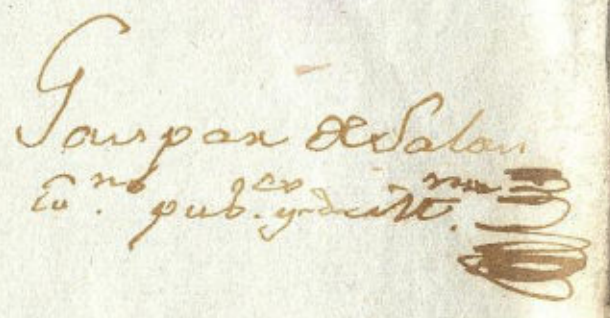 Gaspar de Salau
Eu.no pub.co y de